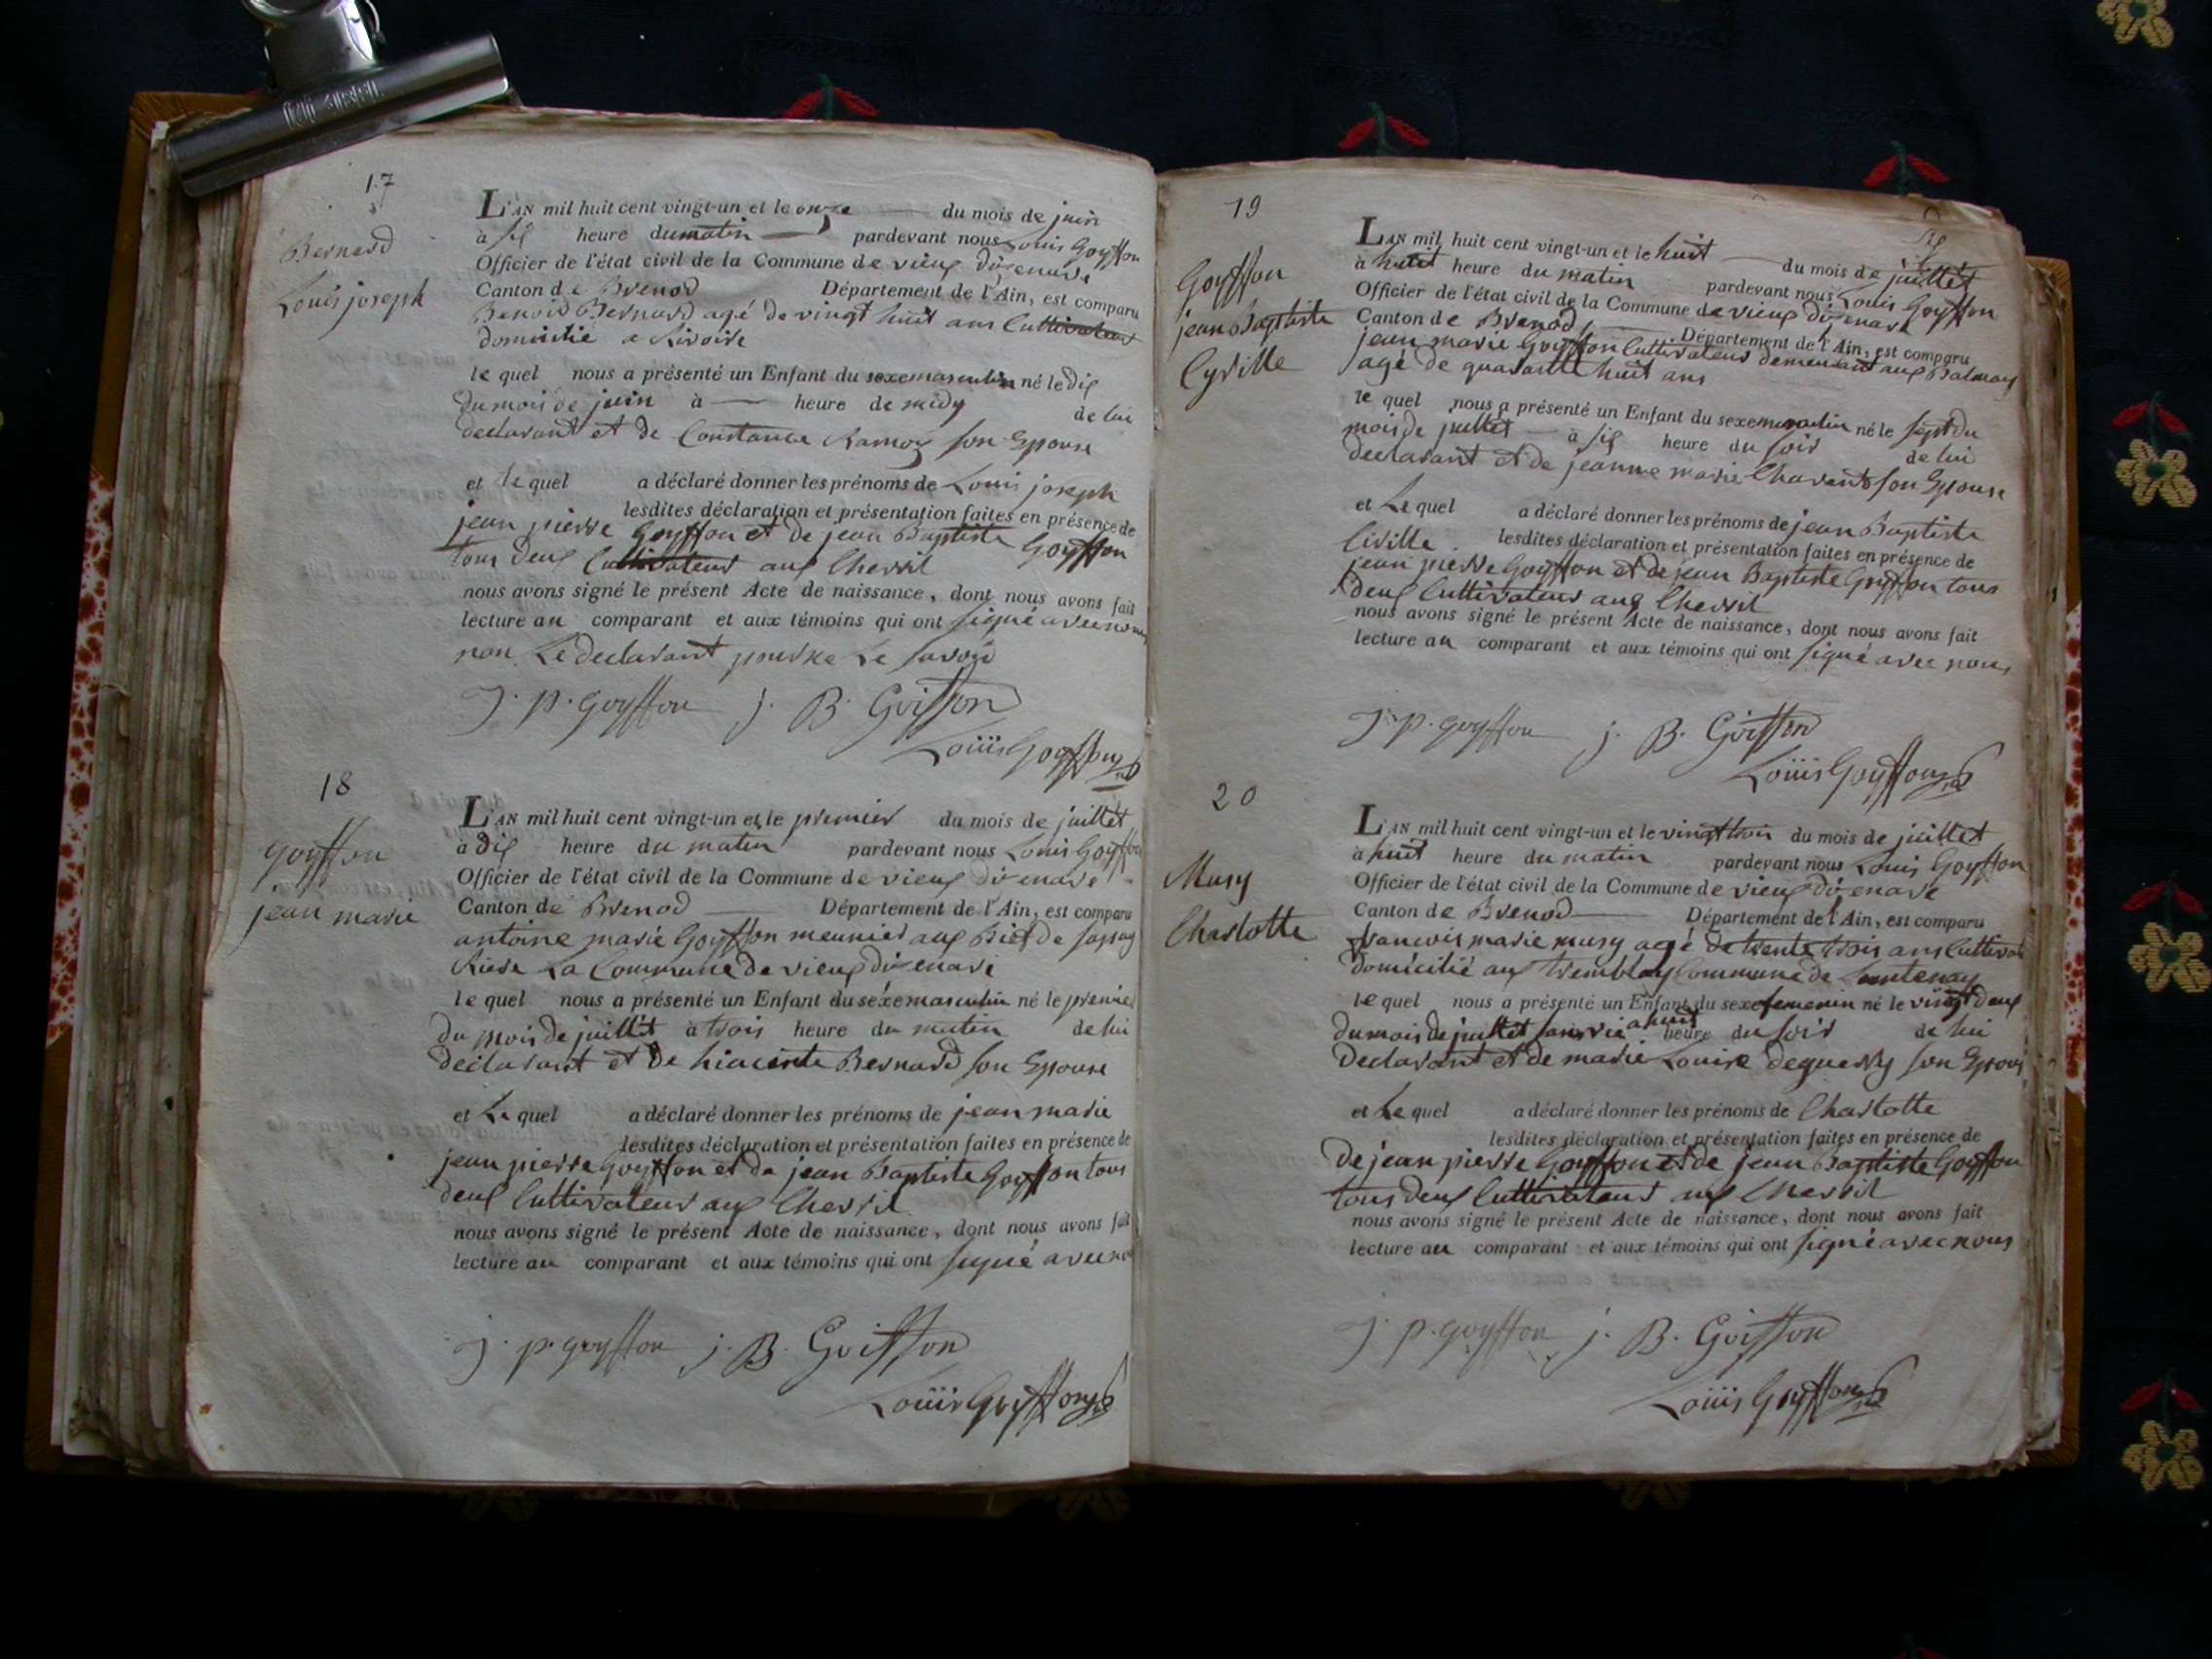 17
Bernard
Louis joseph
L'AN mil huit cent vingt-un et le onze du mois de juin
à six heure du matin pardevant nous Louis Goyffon
Officier de l'état civil de la Commune de vieux d'izenave
Canton de Brenod Département de l'Ain, est comparu
Benoid Bernard agé de vingt huit ans Cultivateur
domicilié a
le quel nous a présenté un Enfant du sexe masculin né le dix
du mois de juin à heure de midy de lui
declarant et de Constance Ramoz son Epouse
et le quel a déclaré donner les prénoms de Louis joseph
lesdites déclaration et présentation faites en présence de
jean pierre Goyffon et de jean Baptiste Goyffon
tous deux Cultivateurs aux Chevril
nous avons signé le présent Acte de naissance, dont nous avons fait
lecture au comparant et aux témoins qui ont signé avec nous
non Le declarant pour ne Le savoir
J. p. goyffon j. B. Goiffon
Louis Goyffon
18
goyffon
jean marie
L'AN mil huit cent vingt-un et le premier du mois de juillet
à dix heure du matin pardevant nous Louis Goyffon
Officier de l'état civil de la Commune de vieux d'izenave
Canton de Brenod Département de l'Ain, est comparu
antoine marie Goyffon meunier aux Bief de
La Commune de vieux d'izenave
le quel nous a présenté un Enfant du sexe masculin né le premier
du mois de juillet à trois heure du matin de lui
declarant et de hiacinte Bernard son Epouse
et Le quel a déclaré donner les prénoms de jean marie
lesdites déclaration et présentation faites en présence de
jean pierre Goyffon et de jean Baptiste Goyffon tous
deux Cultivateurs aux Chevril
nous avons signé le présent Acte de naissance, dont nous avons fait
lecture au comparant et aux témoins qui ont signé avec nous
J. p. goyffon j. B. Goiffon
Louis Goyffon
19
Goyffon
jean Baptiste
Cyrille
L'AN mil huit cent vingt-un et le huit du mois de juillet
à huit heure du matin pardevant nous Louis Goyffon
Officier de l'état civil de la Commune de vieux d'izenave
Canton de Brenod Département de l'Ain, est comparu
jean marie Goyffon Cultivateur demeurant aux Balmay
agé de quarante huit ans
le quel nous a présenté un Enfant du sexe masculin né le sept du
mois de juillet à six heure du soir de lui
declarant et de jeanne marie Chavent son Epouse
et Le quel a déclaré donner les prénoms de jean Baptiste
Cirille lesdites déclaration et présentation faites en présence de
jean pierre Goyffon et de jean Baptiste Goyffon tous
deux Cultivateurs aux Chevril
nous avons signé le présent Acte de naissance, dont nous avons fait
lecture au comparant et aux témoins qui ont signé avec nous
J. p. goyffon j. B. Goiffon
Louis Goyffon
20
Musy
Charlotte
L'AN mil huit cent vingt-un et le vingt trois du mois de juillet
à huit heure du matin pardevant nous Louis Goyffon
Officier de l'état civil de la Commune de vieux d'izenave
Canton de Brenod Département de l'Ain, est comparu
francois marie musy agé de trente trois ans Cultivat
domicilié aux tremblay Commune de Lantenay
le quel nous a présenté un Enfant du sexe femenin né le vingt deux
du mois de juillet sans vie a huit heure du soir de lui
Declarant et de marie Louise deguerry son Epous
et Le quel a déclaré donner les prénoms de Charlotte
lesdites déclaration et présentation faites en présence de
de jean pierre Goyffon et de jean Baptiste Goyffon
tous deux Cultivateurs aux Chevril
nous avons signé le présent Acte de naissance, dont nous avons fait
lecture au comparant et aux témoins qui ont signé avec nous
J. p. goyffon j. B. Goiffon
Louis Goyffon